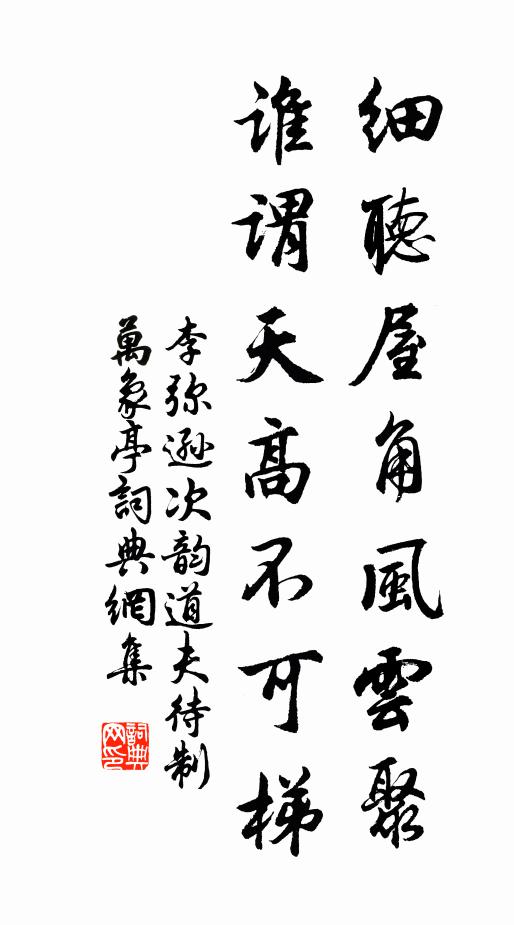 细聽屋角風雲聚
谁谓天高不可梯
李弥遜次韵道夫待制
萬象亭詞典網集
詞典
网印